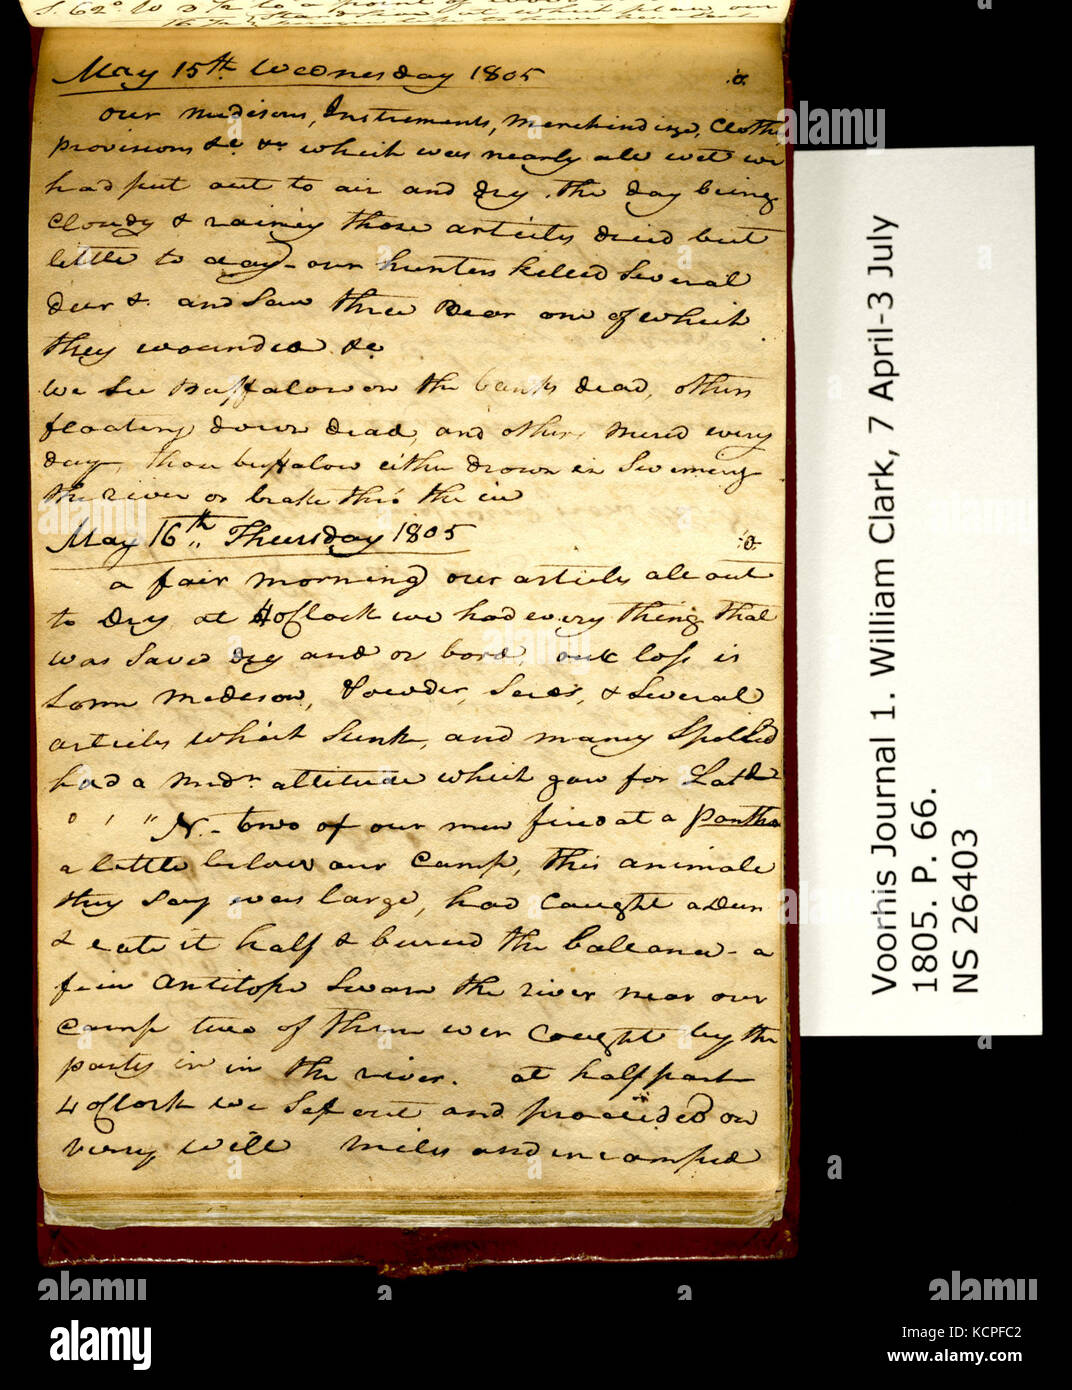 May 15th Wednesday 1805
our medisons, Instruments, Merchindize, Clothes
provisions &c. &c. which was nearly all wet we
had put out to air and dry. the day being
Cloudy & rainey those articles dried but
little to day- our hunters killed Several
deer &c. and Saw three Bear one of which
they wounded &c.
we See Buffalow on the banks dead, others
floating down dead, and others mired every
day, those buffalow either drown in Swiming
the river or brake thro' the ice
May 16th,, Thursday 1805
a fair morning our articles all out
to Dry at 4 oClock we had every thing that
was Saved dry and on bord, our loss is
Some medison, Powder, Seeds, & Several
articles which Sunk, and maney Spoiled
had a medn. altitude which gave for Latd.
° ' " N.- two of our men fired at a Panthr
a little below our Camp, this animale
they Say was large, had Caught a Deer
& eate it half & buried the ballance- a
fiew antilope Swam the river near our
Camp two of them wer Cought by the
party in in the river. at half past
4 oClock we Set out and proceeded on
verry well miles and incamped
Voorhis Journal 1. William Clark, 7 April-3 July
1805. P. 66.
NS 26403
alamy
Image ID: KCPFC2
www.alamy.com